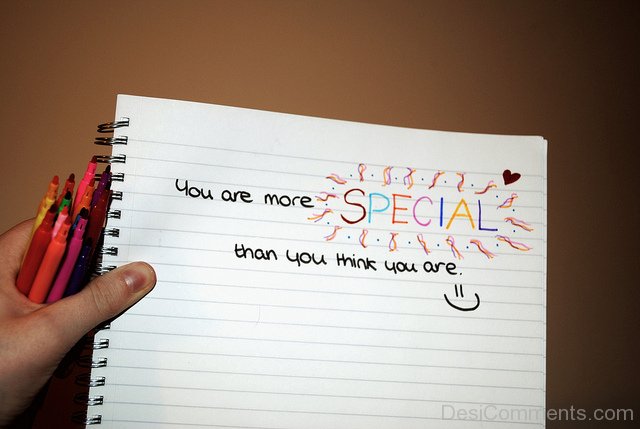 You are more SPECIAL
than you think you are.
DesiComments.com